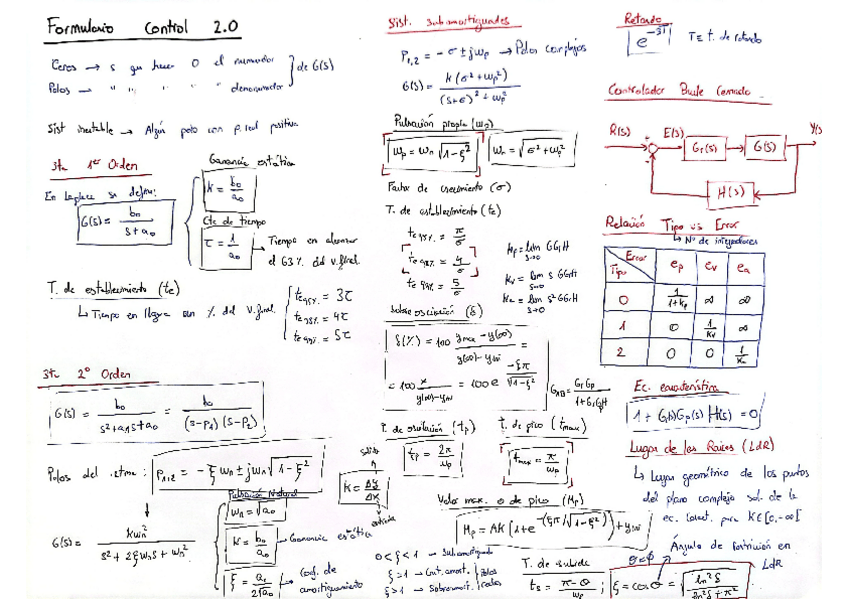 Formulario Control 2.0
Ceros → s que hacen 0 el numerador
Polos → " " " " denominador
} de G(s)
Sist inestable → Algún polo con p. real positiva
1er Orden
En Laplace se define:
G(s) = b₀ / (s + a₀)
Ganancia estática
K = b₀ / a₀
Cte de tiempo
τ = 1 / a₀ → Tiempo en alcanzar el 63% del v. final
T. de establecimiento (te)
↳ Tiempo en llegar a un % del v. final
te 95% = 3τ
te 98% = 4τ
te 99% = 5τ
2º Orden
G(s) = b₀ / (s² + a₁s + a₀) = b₀ / ((s-p₁)(s-p₂))
Polos del sistema: P₁,₂ = -ξωn ± jωn √(1-ξ²)
G(s) = kωn² / (s² + 2ξωns + ωn²)
Pulsación Natural
ωn = √a₀
K = b₀ / a₀ → Ganancia estática
ξ = a₁ / 2√a₀ → Coef. de amortiguamiento
salida
K = Δy / Δx
entrada
Sist. Subamortiguados
P₁,₂ = -σ ± jωp → Polos complejos
G(s) = k(σ² + ωp²) / ((s+σ)² + ωp²)
Pulsación propia (ωp)
ωp = ωn √(1-ξ²)
ωn = √(σ² + ωp²)
Factor de crecimiento (σ)
T. de establecimiento (te)
te 95% = π / σ
te 98% = 4 / σ
te 99% = 5 / σ
Kp = lim s→0 GG₁H
Kv = lim s→0 s GG₁H
Ka = lim s→0 s² GG₁H
Sobreoscilación (δ)
δ(%) = 100 (ymax - y(∞)) / (y(∞) - yini) =
= 100 x / (y(∞) - yini) = 100 e^(-ξπ / √(1-ξ²))
P. de oscilación (tp)
tp = 2π / ωp
T. de pico (tmax)
tmax = π / ωp
Valor max. o de pico (Mp)
Mp = AK [1 + e^(-(ξπ/√(1-ξ²)))] + yini
0 < ξ < 1 → Subamortiguado
ξ = 1 → Crit. amort.
ξ > 1 → Sobreamort.
T. de subida
ts = (π - θ) / ωp
ξ = cos θ = √(ln²δ / (ln²δ + π²))
Retardo
T ≡ t. de retardo
Controlador Bucle Cerrado
R(s) E(s) G₁(s) G(s) Y(s)
H(s)
Relación Tipo vs Error
↳ Nº de integradores
Tipo Error ep ev ea
0 1/(1+kp) ∞ ∞
1 0 1/kv ∞
2 0 0 1/ka
Ec. característica
Lugar de las Raíces (LdR)
↳ Lugar geométrico de los puntos
del plano complejo sol. de la
ec. caract. para K∈[0,-∞[
Ángulo de
en LdR